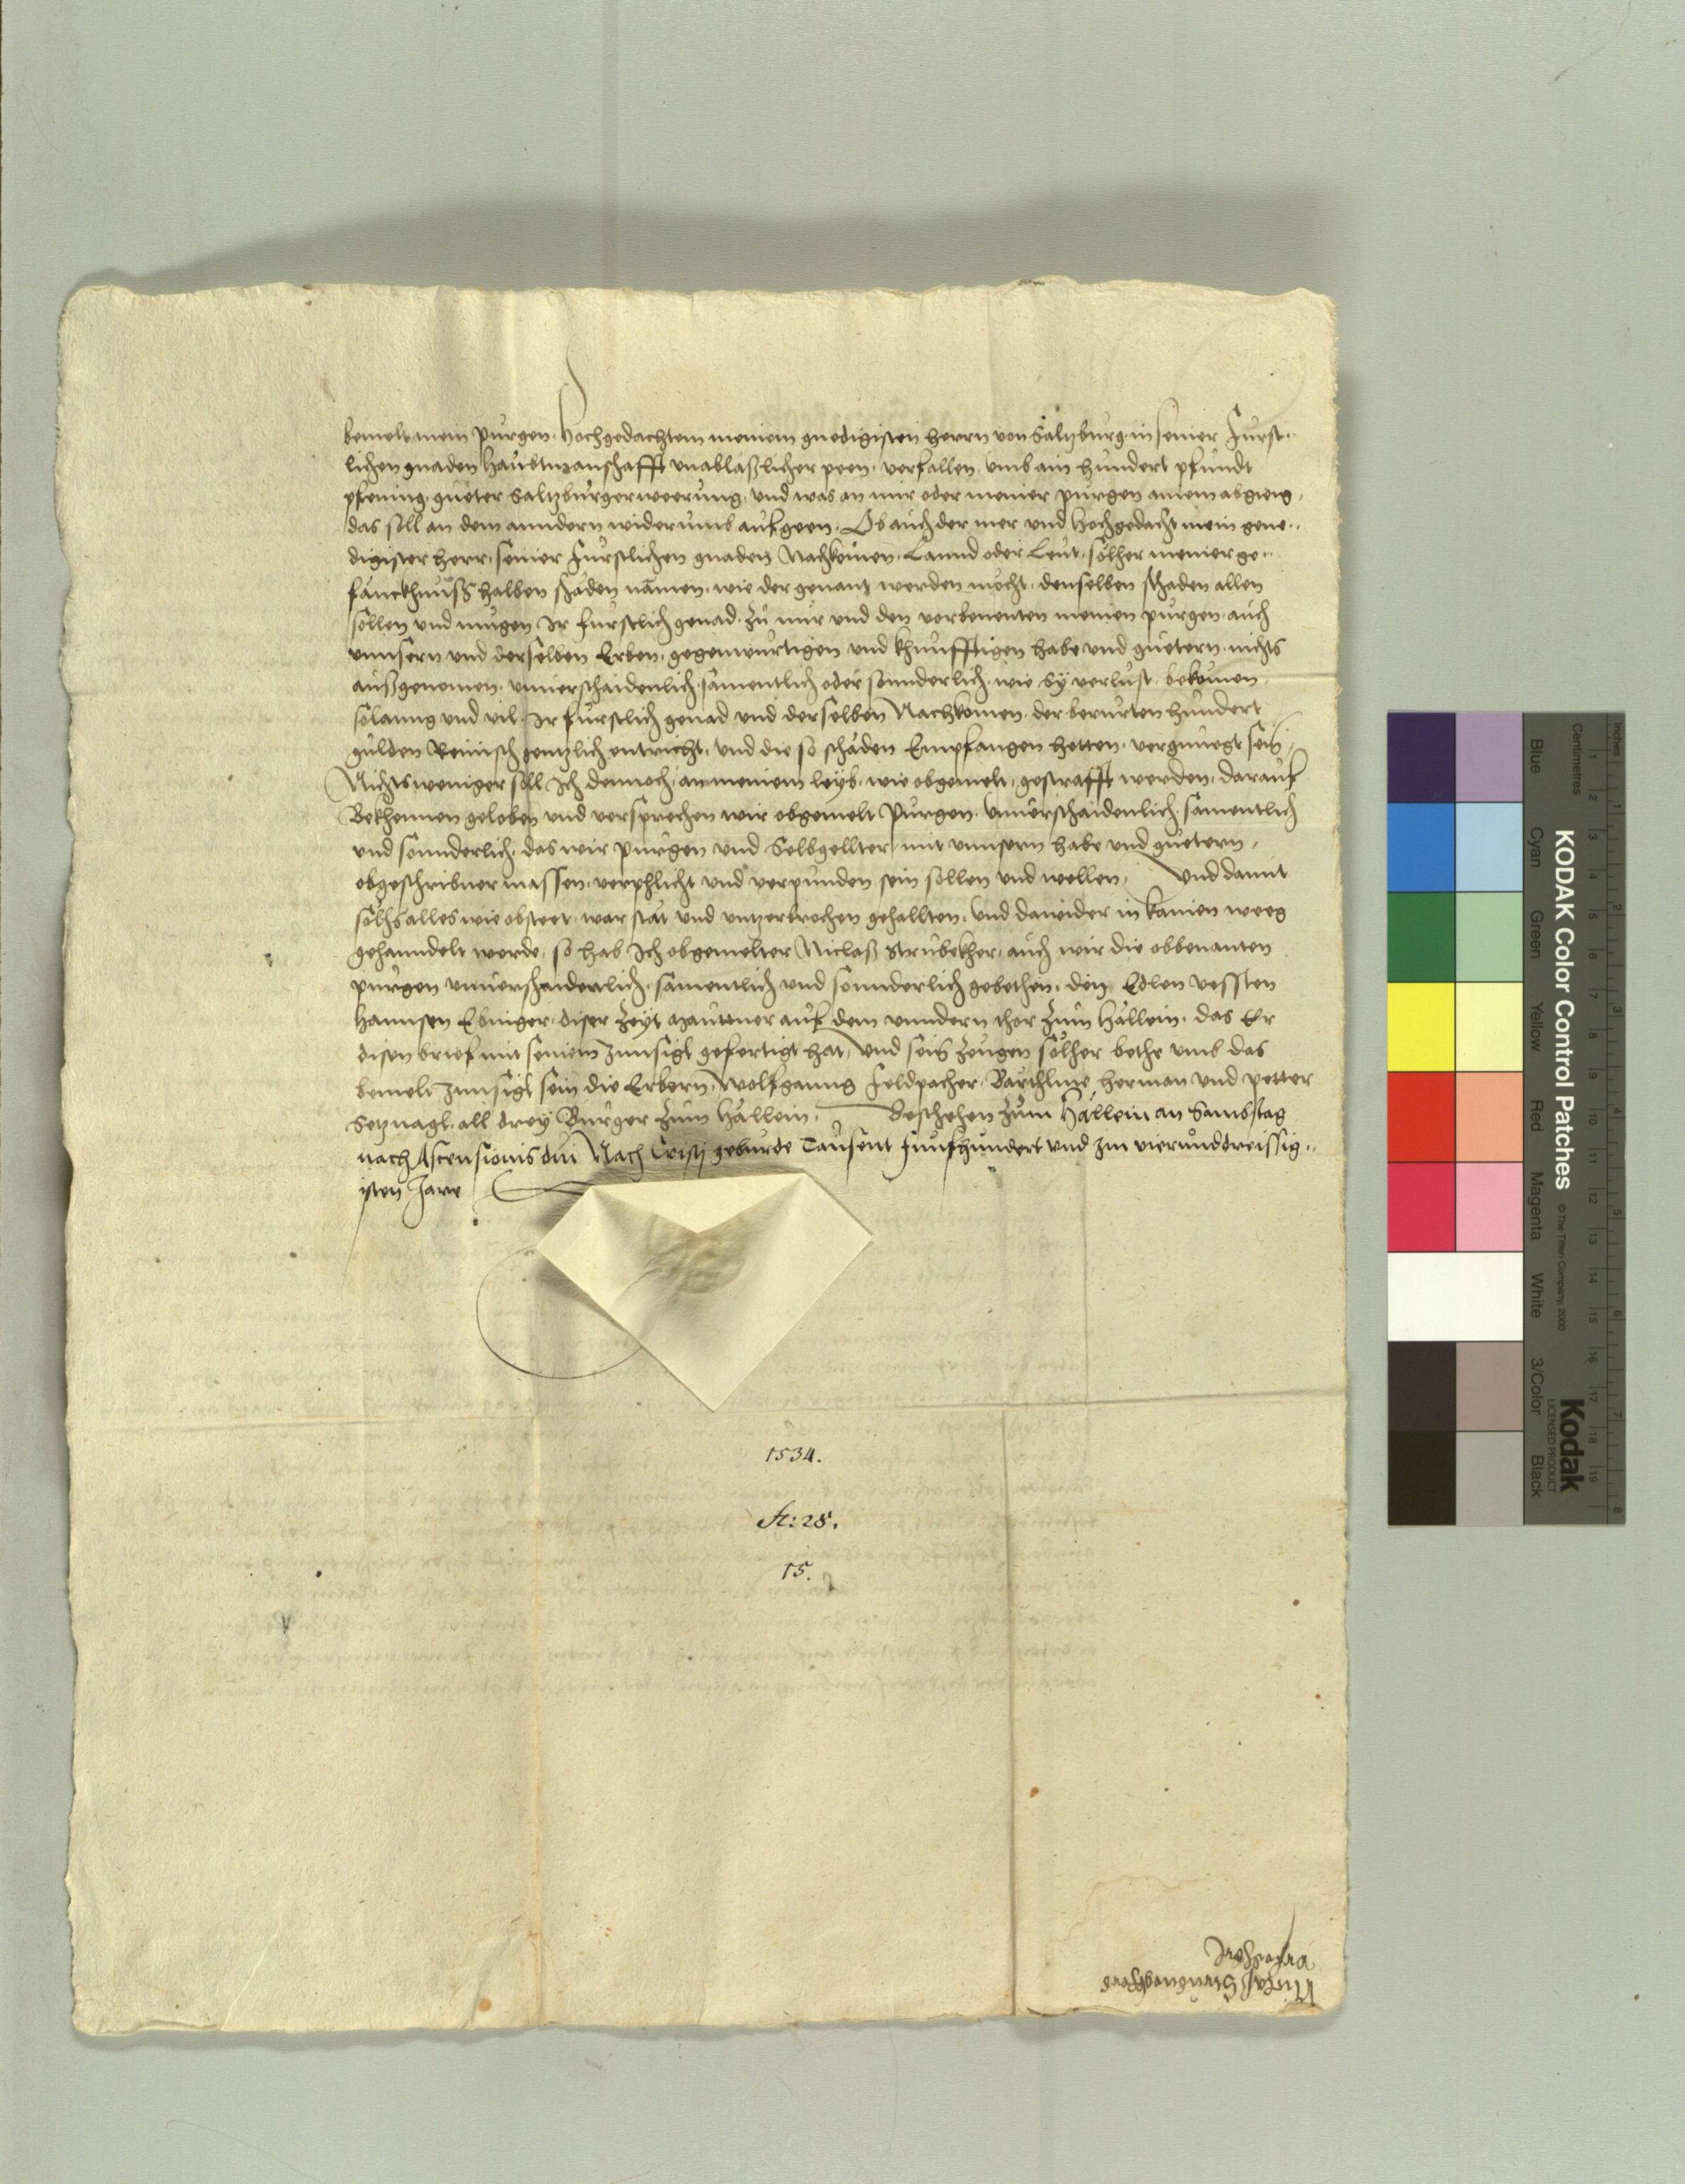 bemelt mein pürgen. Hochgedachtem meinem gnedigisten herrn von Saltzburg. in seiner Fürst..
lichen gnaden Haubtmanschafft unablaßlicher peen. verfallen. umb ain hundert pfundt
pfening. güeter Saltzbürger weerung. und was an mir oder meiner pürgen ainem abgieng.
das soll an dem anndern widerumb aufgeen. Ob auch der mer und Hochgedacht mein gene..
digister herr. seiner Fürstlichen gnaden Nachkomen. Lannd oder Leut. sölher meiner ge..
fänckhnüß halben schaden nämen. wie der genant werden möcht. denselben schaden allen
söllen und mügen Ir fürstlich genad. zu mir und den vorbenenten meinen pürgen. auch
unnsern und derselben Erben. gegenwürtigen und khünfftigen habe und güetern. nichts
außgenomen. unnerschaidenlich. samentlich oder sonnderlich. wie sy verlust. bekomen.
solanng und vil. Ir fürstlich genad und derselben Nachkomen. der berürten hundert
gulden Reinisch genntzlich entricht. und die so schäden Empfangen hetten. vergnüegt sein
Nichtsweniger soll Ich dennoch. an meinem leyb. wie obgemelt. gestrafft werden. darauf
Bekhennen geloben und versprechen wir obgemelt Pürgen. unnerschaidenlich samentlich
und sonnderlich. das wir pürgen und Selbgellter. mit unnsern habe und güetern.
obgeschribner massen. verphlicht und verpunden sein sollen und wellen. Und damit
sölhs alles wie obsteet. war stät und untzerbrochen gehallten. und dawider in kainen weeg
gehanndelt werde. so hab Ich obgemelter Niclaß Strubekher. auch wir die obbenanten
pürgen unnerschaidenlich. samentlich und sonnderlich gebethen. den Edlen vessten
Hannsen Ebinger. diser zeyt Mauttner auf dem unndern thor zum Hällein. das Er
disen brief mit seinem Innsigl gefertigt hat. Und seis zeugen sölher bethe umb das
bemelt Innsigl sein die Erbern. Wolfganng Feldpacher. Barthlme Herman und petter
Setznagl. all drey Burger zum Hällein. Beschehen zum Hällein an Sambstag
nach Ascensionis dni Nach Cristj gebürde Tausent Funfhundert und Im vierunddreissig..
isten Jare
1534.
St: 28.
15.